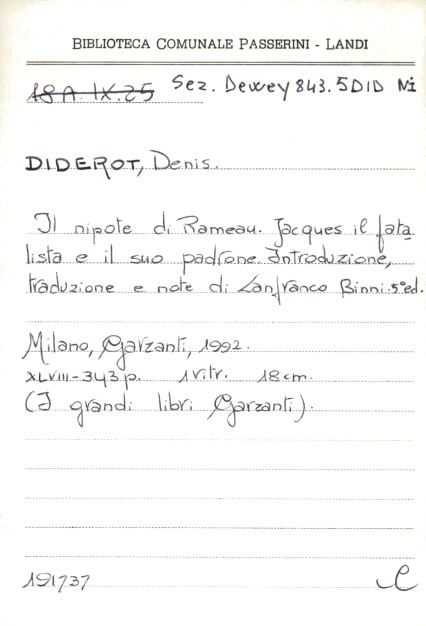 BIBLIOTECA COMUNALE PASSERINI - LANDI
18 A. IX. 25 Sez. Dewey 843.5 DID Ni
DIDEROT, Denis.
Il nipote di Rameau. Jacques il fata
lista e il suo padrone. Introduzione,
traduzione e note di Lanfranco Binni. 5°ed.
Milano, Garzanti, 1992.
XLVIII-343 p. 1 ritr. 18 cm.
(I grandi libri Garzanti).
191737